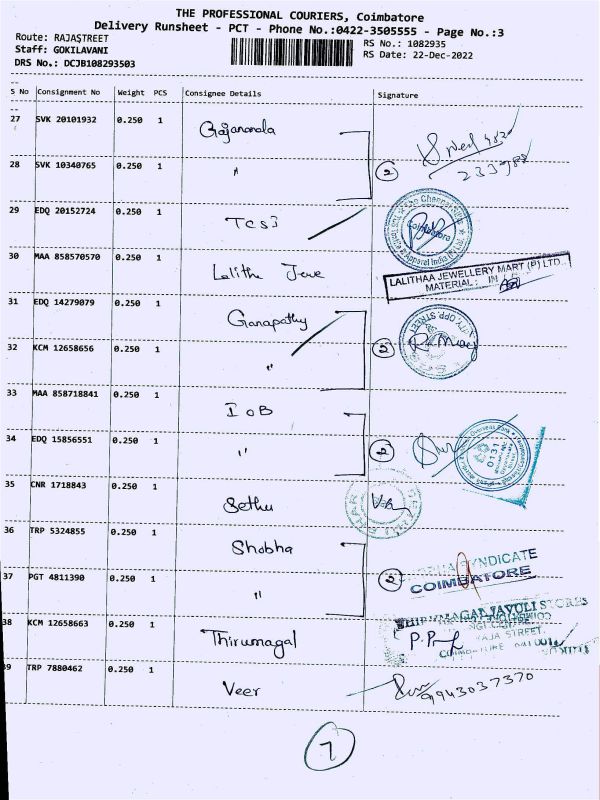 THE PROFESSIONAL COURIERS, Coimbatore
Delivery Runsheet - PCT - Phone No.:0422-3505555 - Page No.:3
Route: RAJASTREET
RS No.: 1082935
Staff: GOKILAVANI
RS Date: 22-Dec-2022
DRS No.: DCJB108293503
S No Consignment No Weight PCS Consignee Details Signature
27 SVK 20101932 0.250 1
28 SVK 10340765 0.250 1 " 2
29 EDQ 20152724 0.250 1 TCS3
30 MAA 858570570 0.250 1 Lalitha Jewe
LALITHAA JEWELLERY MART (P) LTD
MATERIAL: IN
31 EDQ 14279079 0.250 1 Ganapathy
32 KCM 12658656 0.250 1 " 2
33 MAA 858718841 0.250 1 IOB
34 EDQ 15856551 0.250 1 " 2
0131
35 CNR 1718843 0.250 1 Sethu
36 TRP 5324855 0.250 1 Shobha
SYNDICATE
COIMBATORE
37 PGT 4811390 0.250 1 " 2
38 KCM 12658663 0.250 1 Thirumagal
RAJA STREET
39 TRP 7880462 0.250 1 Veer 9943037370
7